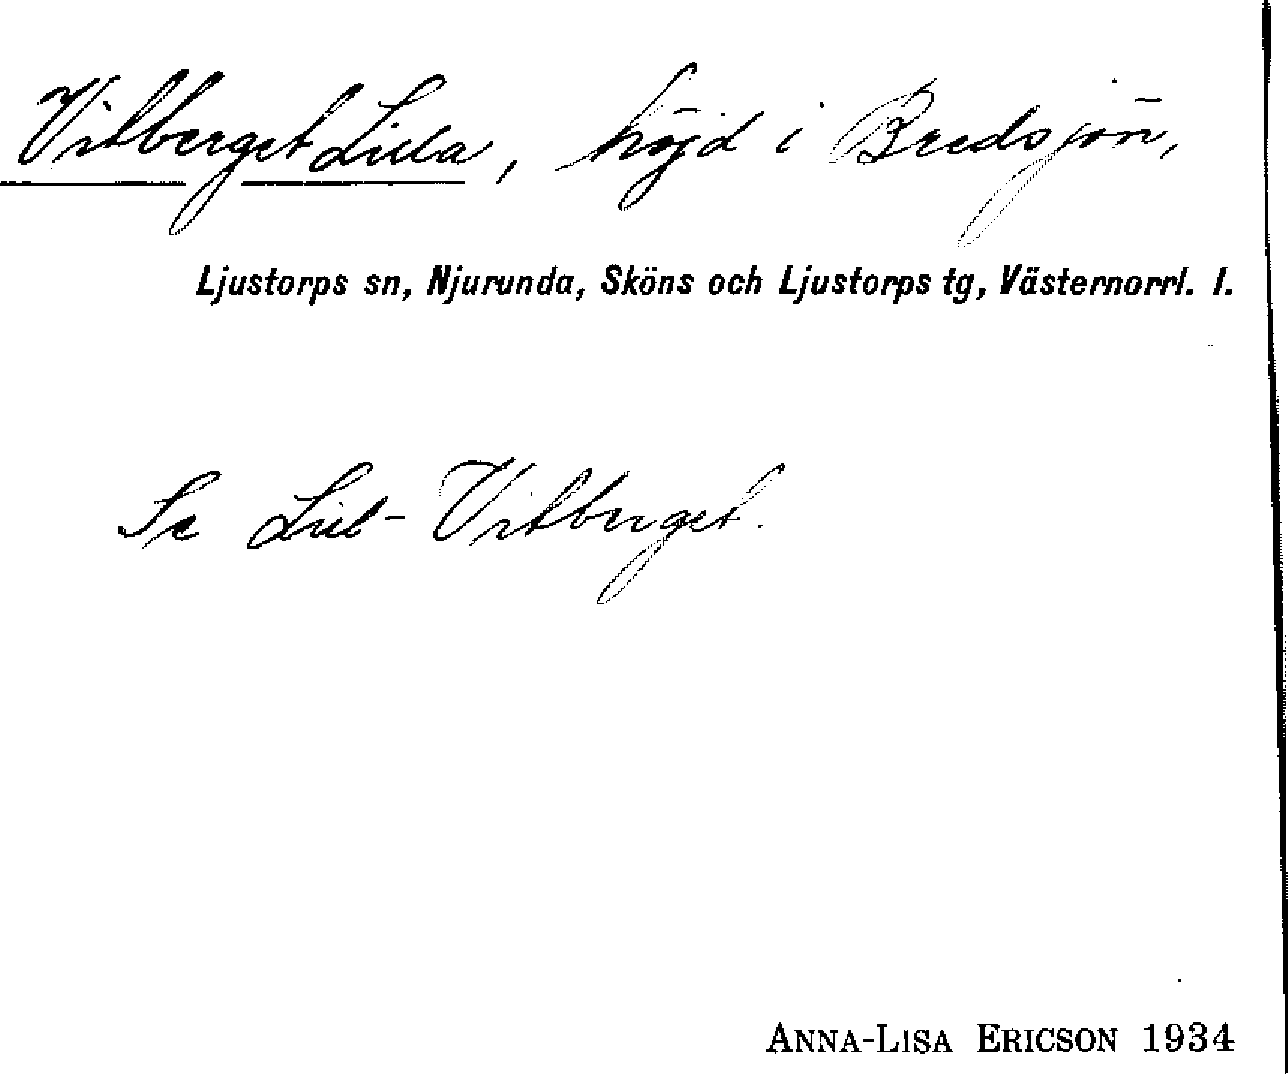 Vitberget Lilla, höjd i Bredsjön,
Ljustorps sn, Njurunda, Sköns och Ljustorps tg, Västernorrl. l.
Se Lill-Vitberget.
ANNA-LISA ERICSON 1934